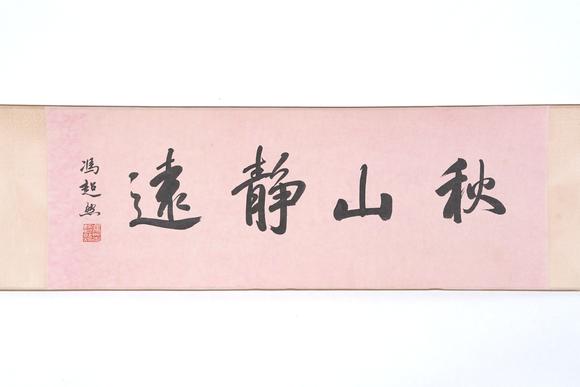 秋山靜遠
馮超然